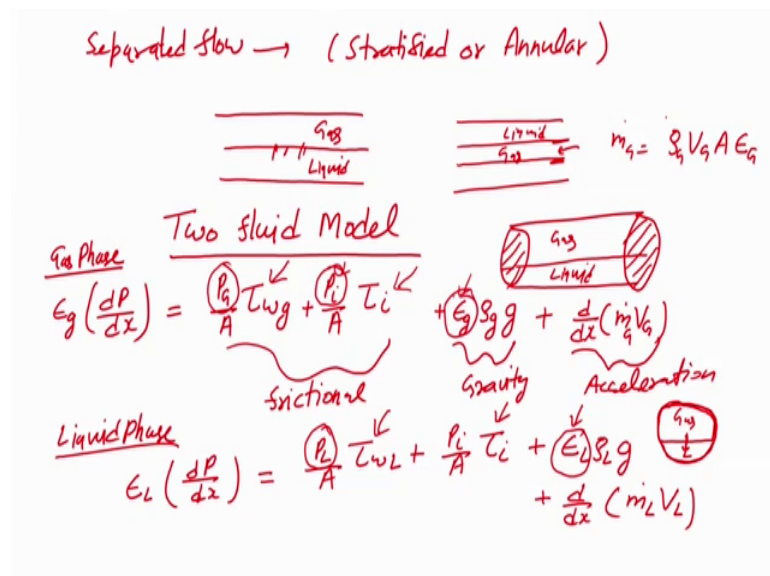 Separated flow → (Stratified or Annular)
Gas
Liquid
Liquid
Gas
ṁ_G = ρ_G V_G A ϵ_G
Two fluid Model
Gas
Liquid
Gas Phase
ϵ_g (dP/dx) = P_g/A τ_wg + P_i/A τ_i + ϵ_g ρ_g g + d/dx (ṁ_G V_G)
frictional
Gravity
Acceleration
Liquid Phase
Gas
L
ϵ_L (dP/dx) = P_L/A τ_wL + P_i/A τ_i + ϵ_L ρ_L g
+ d/dx (ṁ_L V_L)